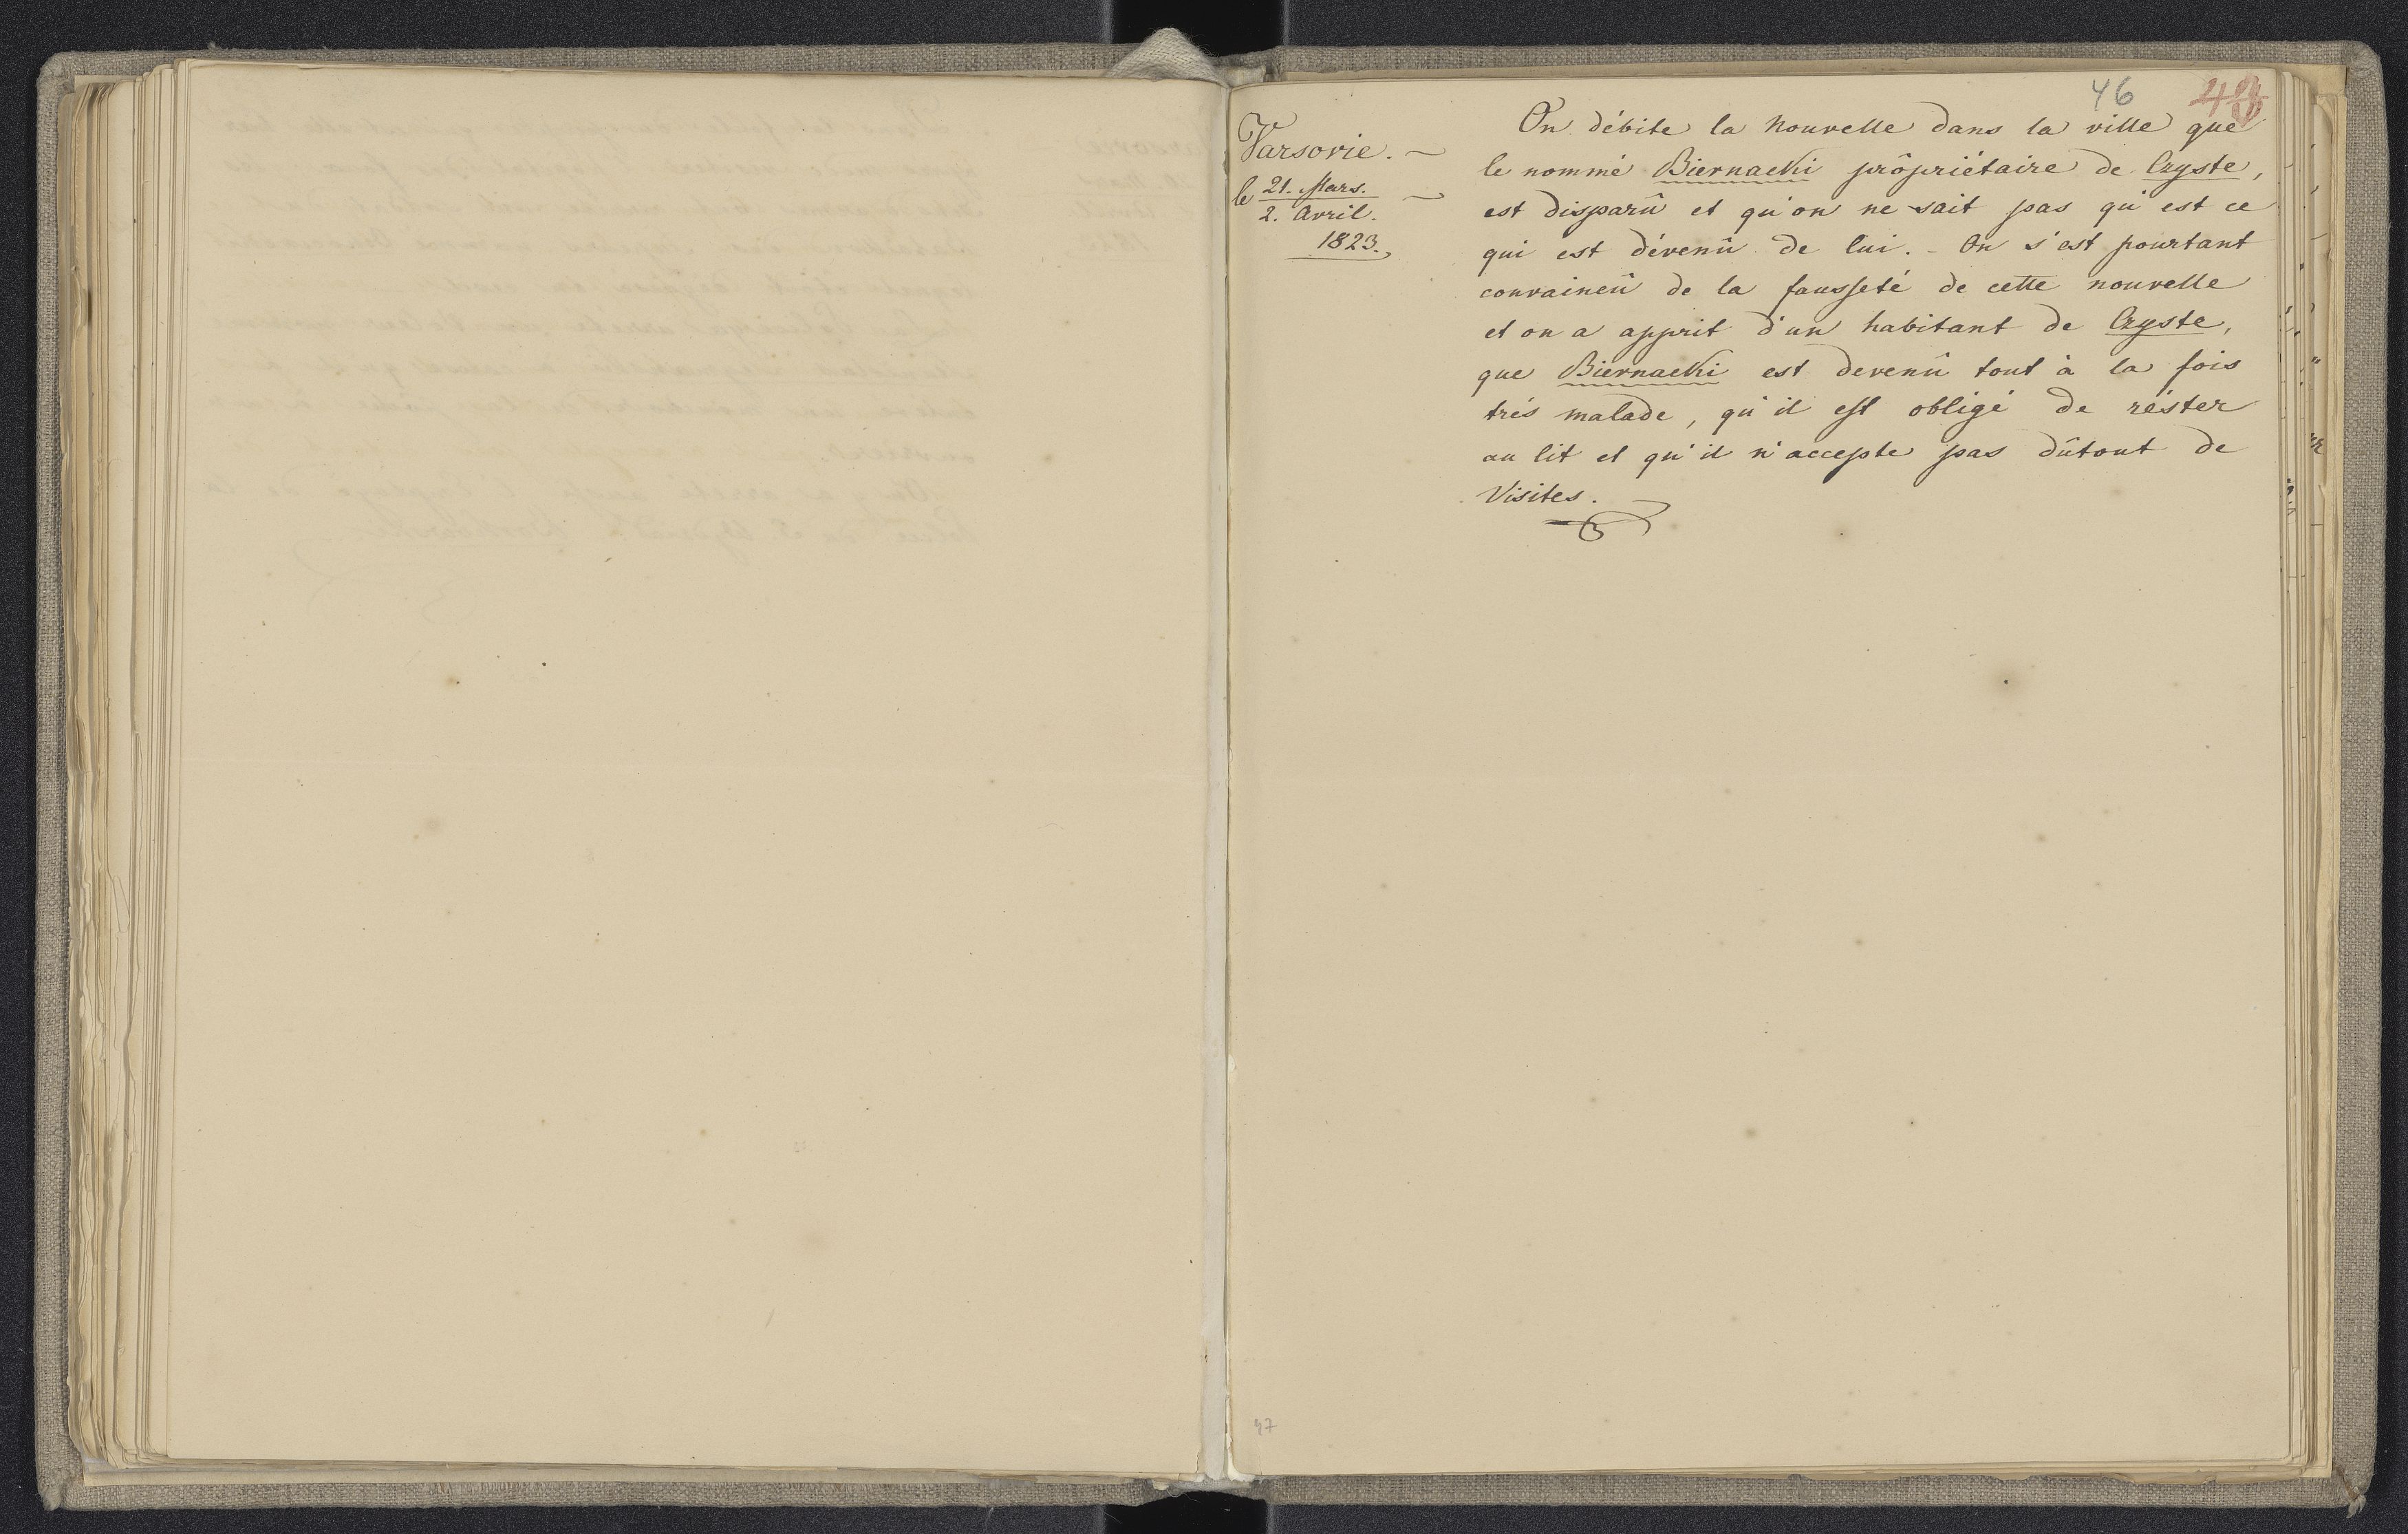 46
Varsovie. ~
le 21. Mars. ~
2. Avril.
1823.
On débite la nouvelle dans la ville que
le nommé Biernacki prôpriétaire de Czyste,
est disparû et qu'on ne sait pas qu'est ce
qui est dévenû de lui. - On s'est pourtant
convaincû de la fausseté de cette nouvelle
et on a apprit d'un habitant de Czyste,
que Biernacki est devenû tout à la fois
trés malade, qu'il est obligé de réster
au lit et qu'il n'accepte pas dûtout de
Visites.
47